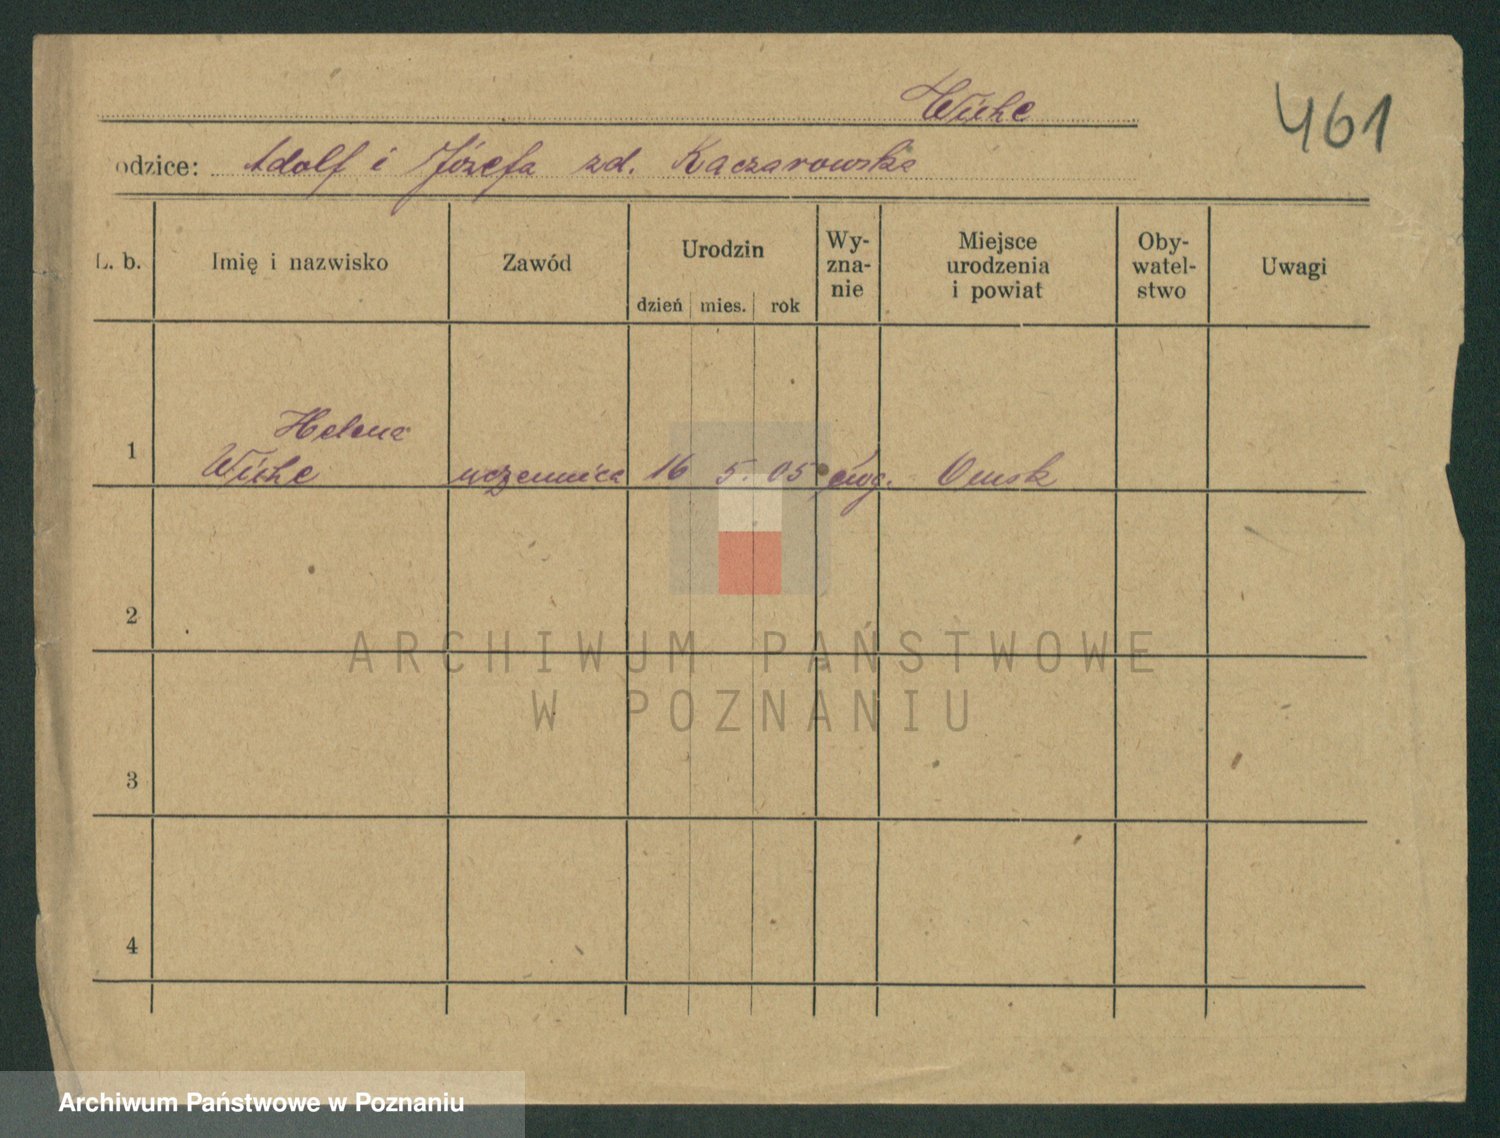 Wiehe
461
odzice: Adolf i Józefa zd. Kaczarowska
L. b.
Imię i nazwisko
Zawód
Urodzin
dzień mies. rok
Wy-
zna-
nie
Miejsce
urodzenia
i powiat
Oby-
watel-
stwo
Uwagi
Helena
1 Wiehe uczennica 16 5. 05 ewg. Omsk
2
3
4
ARCHIWUM PAŃSTWOWE
W POZNANIU
Archiwum Państwowe w Poznaniu